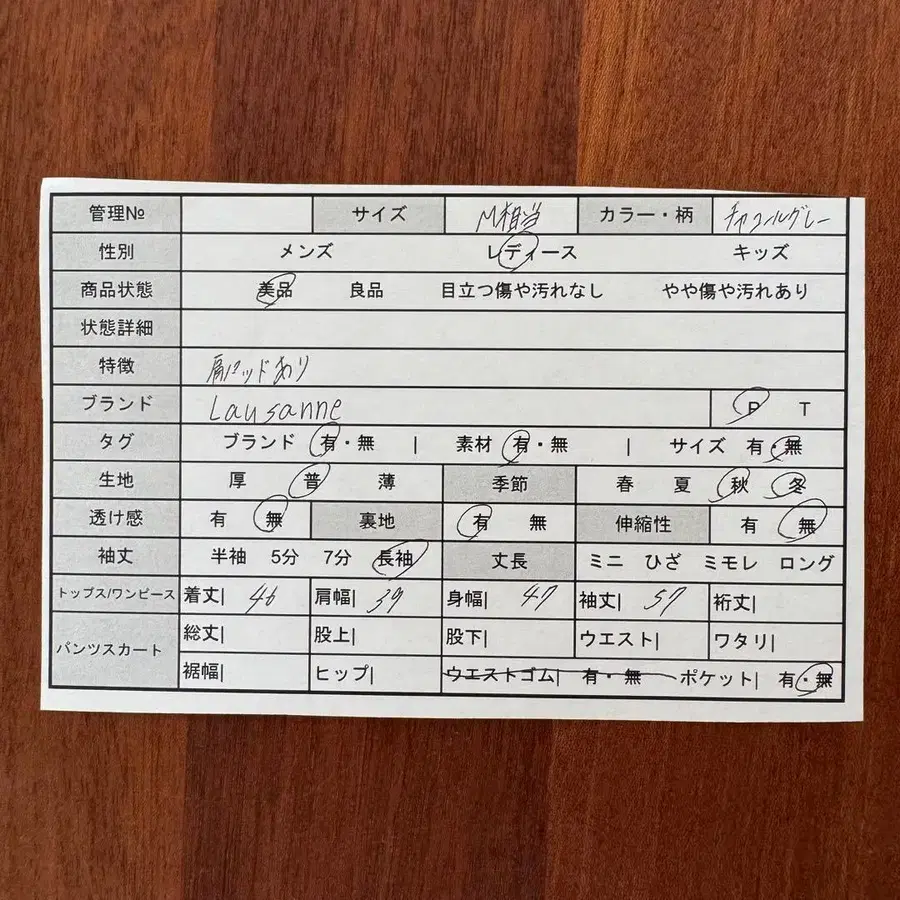 管理№ サイズ M相当 カラー・柄 チャコールグレー
性別 メンズ レディース キッズ
商品状態 美品 良品 目立つ傷や汚れなし やや傷や汚れあり
状態詳細
特徴 肩パッドあり
ブランド Lausanne P T
タグ ブランド 有・無 | 素材 有・無 | サイズ 有・無
生地 厚 普 薄 季節 春 夏 秋 冬
透け感 有 無 裏地 有 無 伸縮性 有 無
袖丈 半袖 5分 7分 長袖 丈長 ミニ ひざ ミモレ ロング
トップス/ワンピース 着丈| 46 肩幅| 39 身幅| 47 袖丈| 57 裄丈|
パンツスカート 総丈| 股上| 股下| ウエスト| ワタリ|
裾幅| ヒップ| ウエストゴム| 有・無 ポケット| 有・無